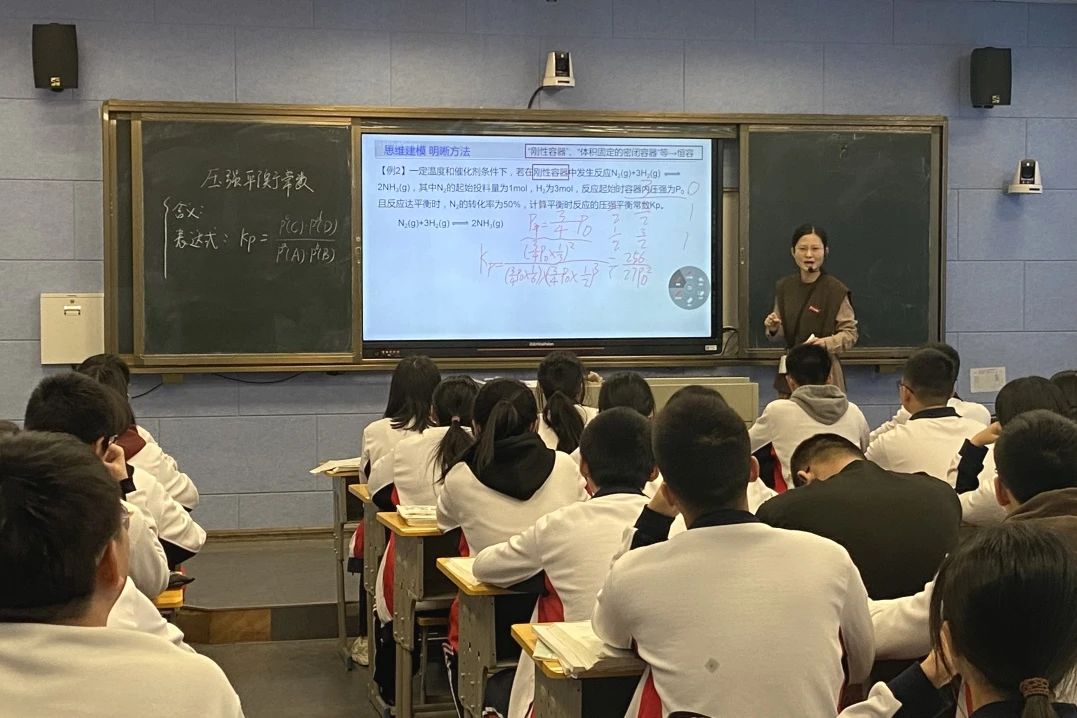 压强平衡常数
含义:
表达式: Kp = P^c(C)·P^d(D) / P^a(A)·P^b(B)
思维建模 明晰方法
“刚性容器”、“体积固定的密闭容器”等→恒容
【例2】一定温度和催化剂条件下，若在刚性容器中发生反应N₂(g)+3H₂(g) ⇌
2NH₃(g)，其中N₂的起始投料量为1mol，H₂为3mol，反应起始时容器内压强为P₀
且反应达平衡时，N₂的转化率为50%，计算平衡时反应的压强平衡常数Kp。
N₂(g)+3H₂(g) ⇌ 2NH₃(g)
P平 = 3/4 P₀
Kp = (3/4P₀×1/3)² / (3/4P₀×1/6)×(3/4P₀×1/2)³ = 256/27P₀²